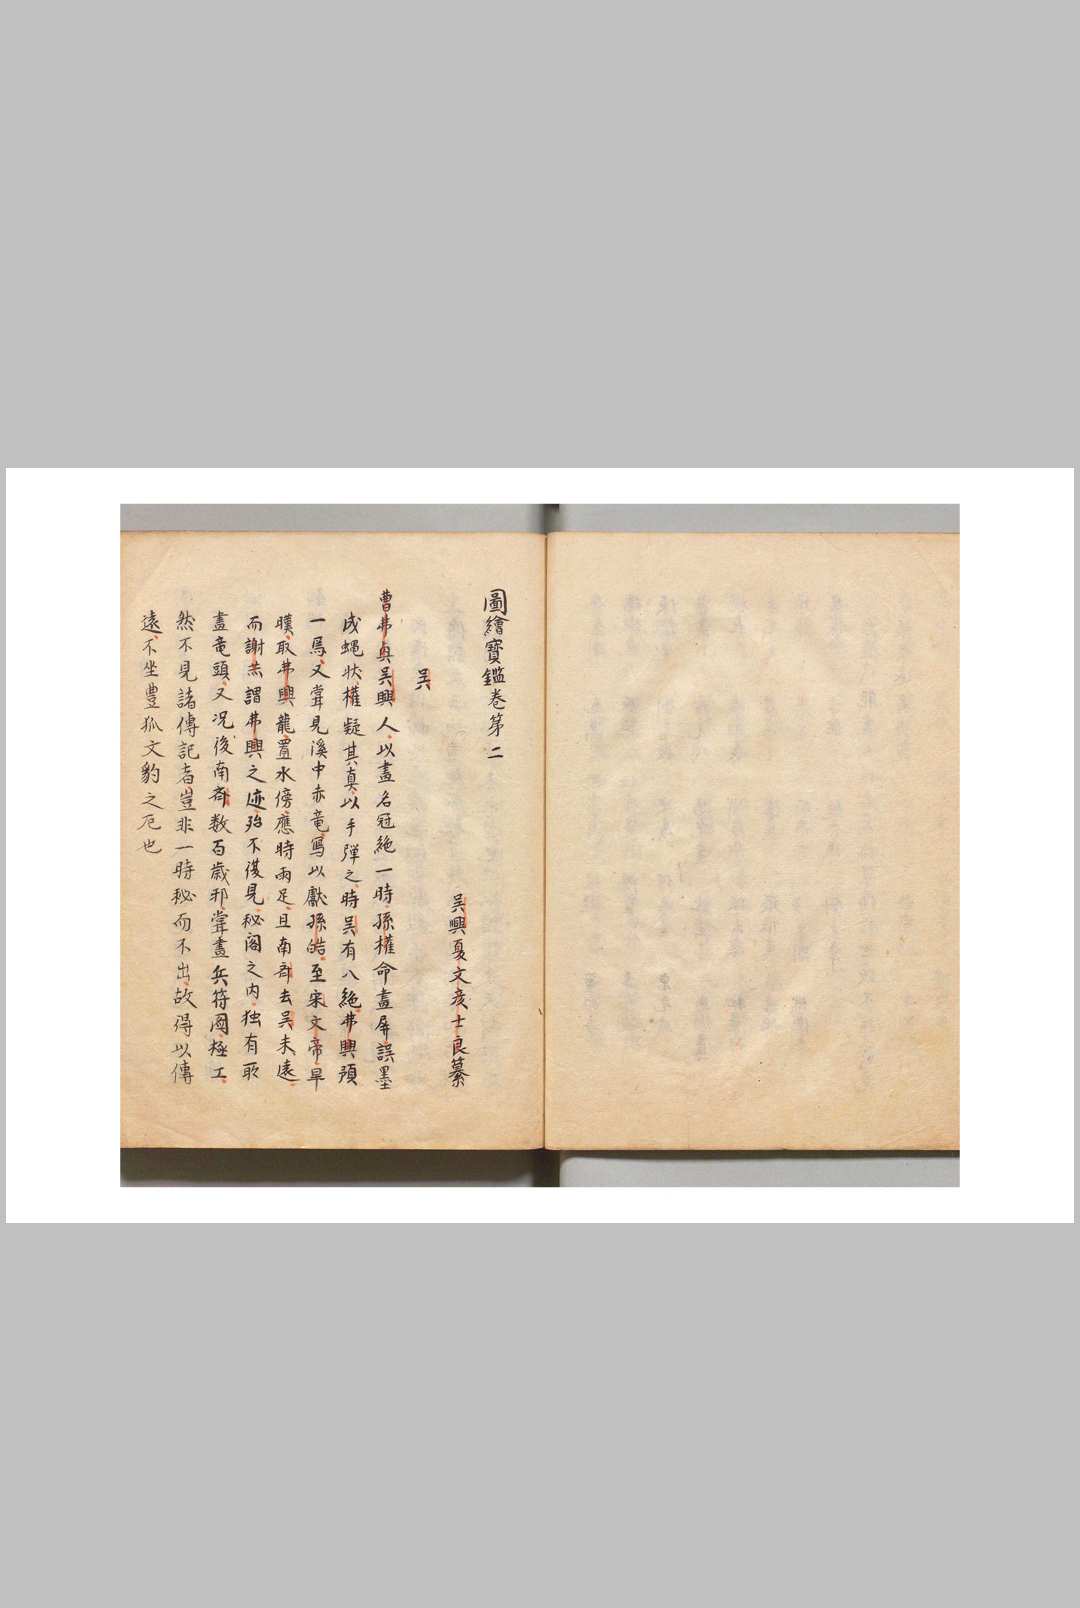 圖繪寳鑑卷第二
吴興夏文彦士良纂
吴
曹弗興吴興人以畫名冠絶一時孫權命畫屏誤墨
成蝿状權疑其真以手弾之時吴有八絶弗興預
一焉又甞見溪中赤竜写以獻孫皓至宋文帝旱
暵取弗興龍置水傍應時雨足且南齊去吴未遠
而謝赫謂弗興之迹殆不復見秘阁之内独有
畫竜頭又况後南斉数百歳邪甞畫兵符圖極工
然不見諸傳記者豈非一時秘而不出故得以傳
遠不坐豊狐文豹之厄也